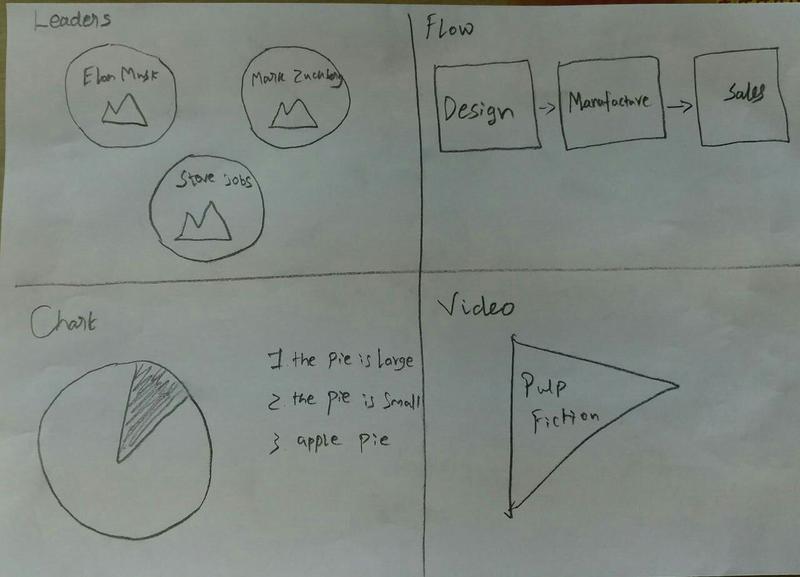 Leaders
Elon Musk
Mark Zuckberg
Steve jobs
Flow
Design
Manufacture
Sales
Chart
1. the pie is large
2. the pie is small
3 apple pie
Video
Pulp
Fiction